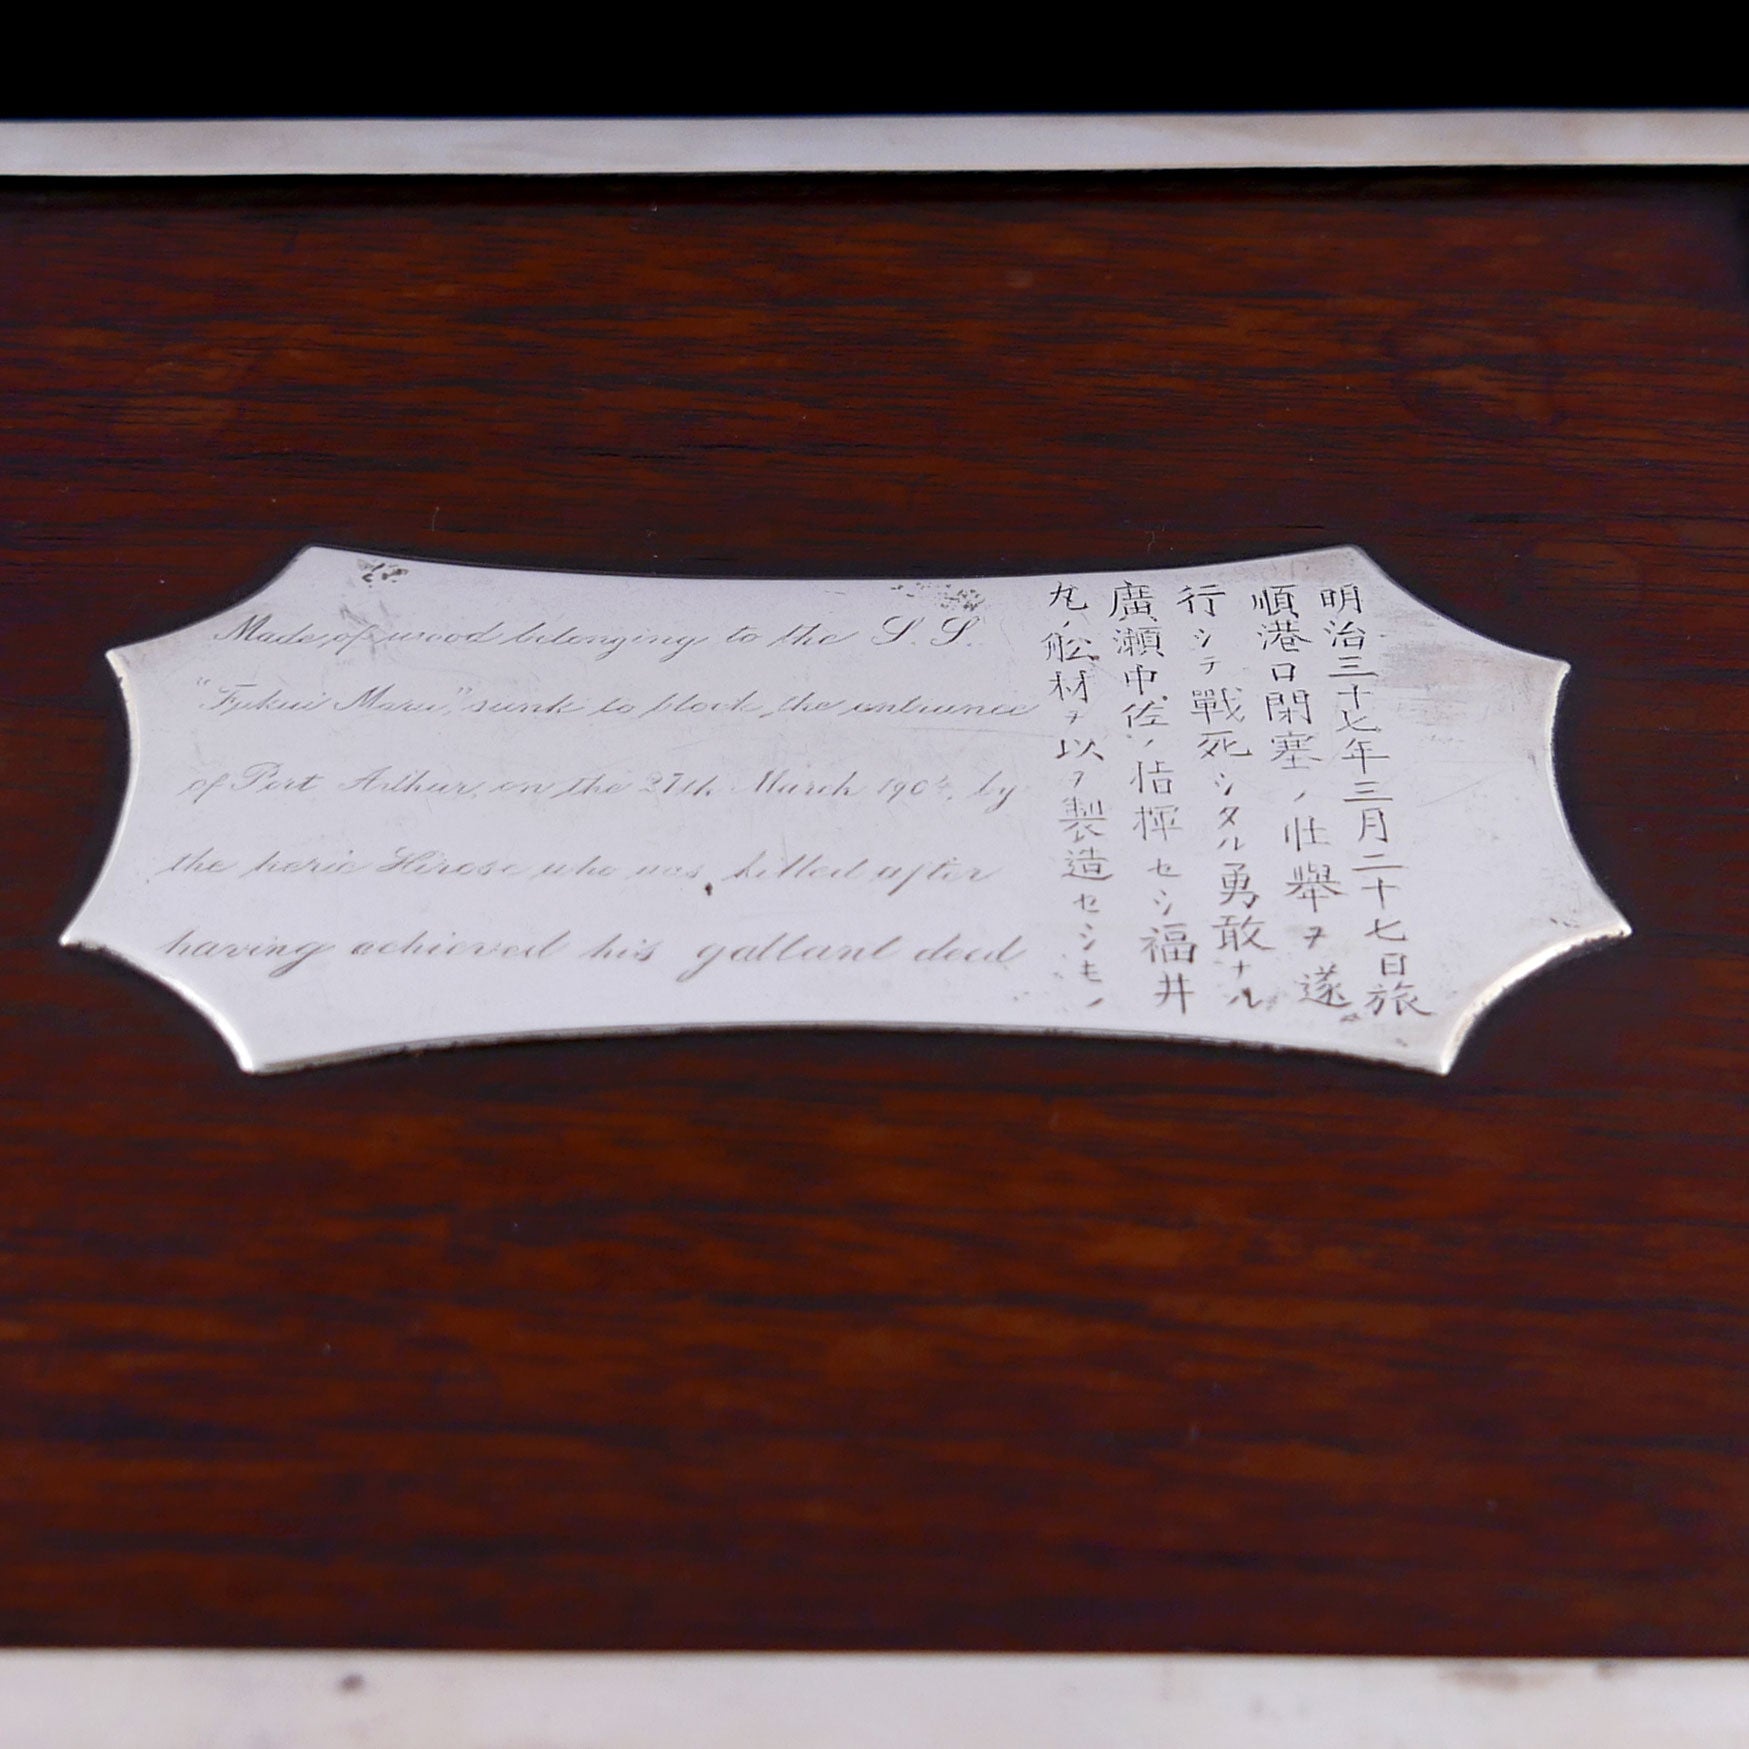 Made of wood belonging to the S. S.
"Fukui Maru," sunk to block the entrance
of Port Arthur, on the 27th March 1904, by
the heric Hirose who was killed after
having achieved his gallant deed
明治三十七年三月二十七日旅
順港口閉塞ノ壮擧ヲ遂
行シテ戰死シタル勇敢ナル
廣瀬中佐ノ指揮セシ福井
丸ノ舩材ヲ以テ製造セシモノ